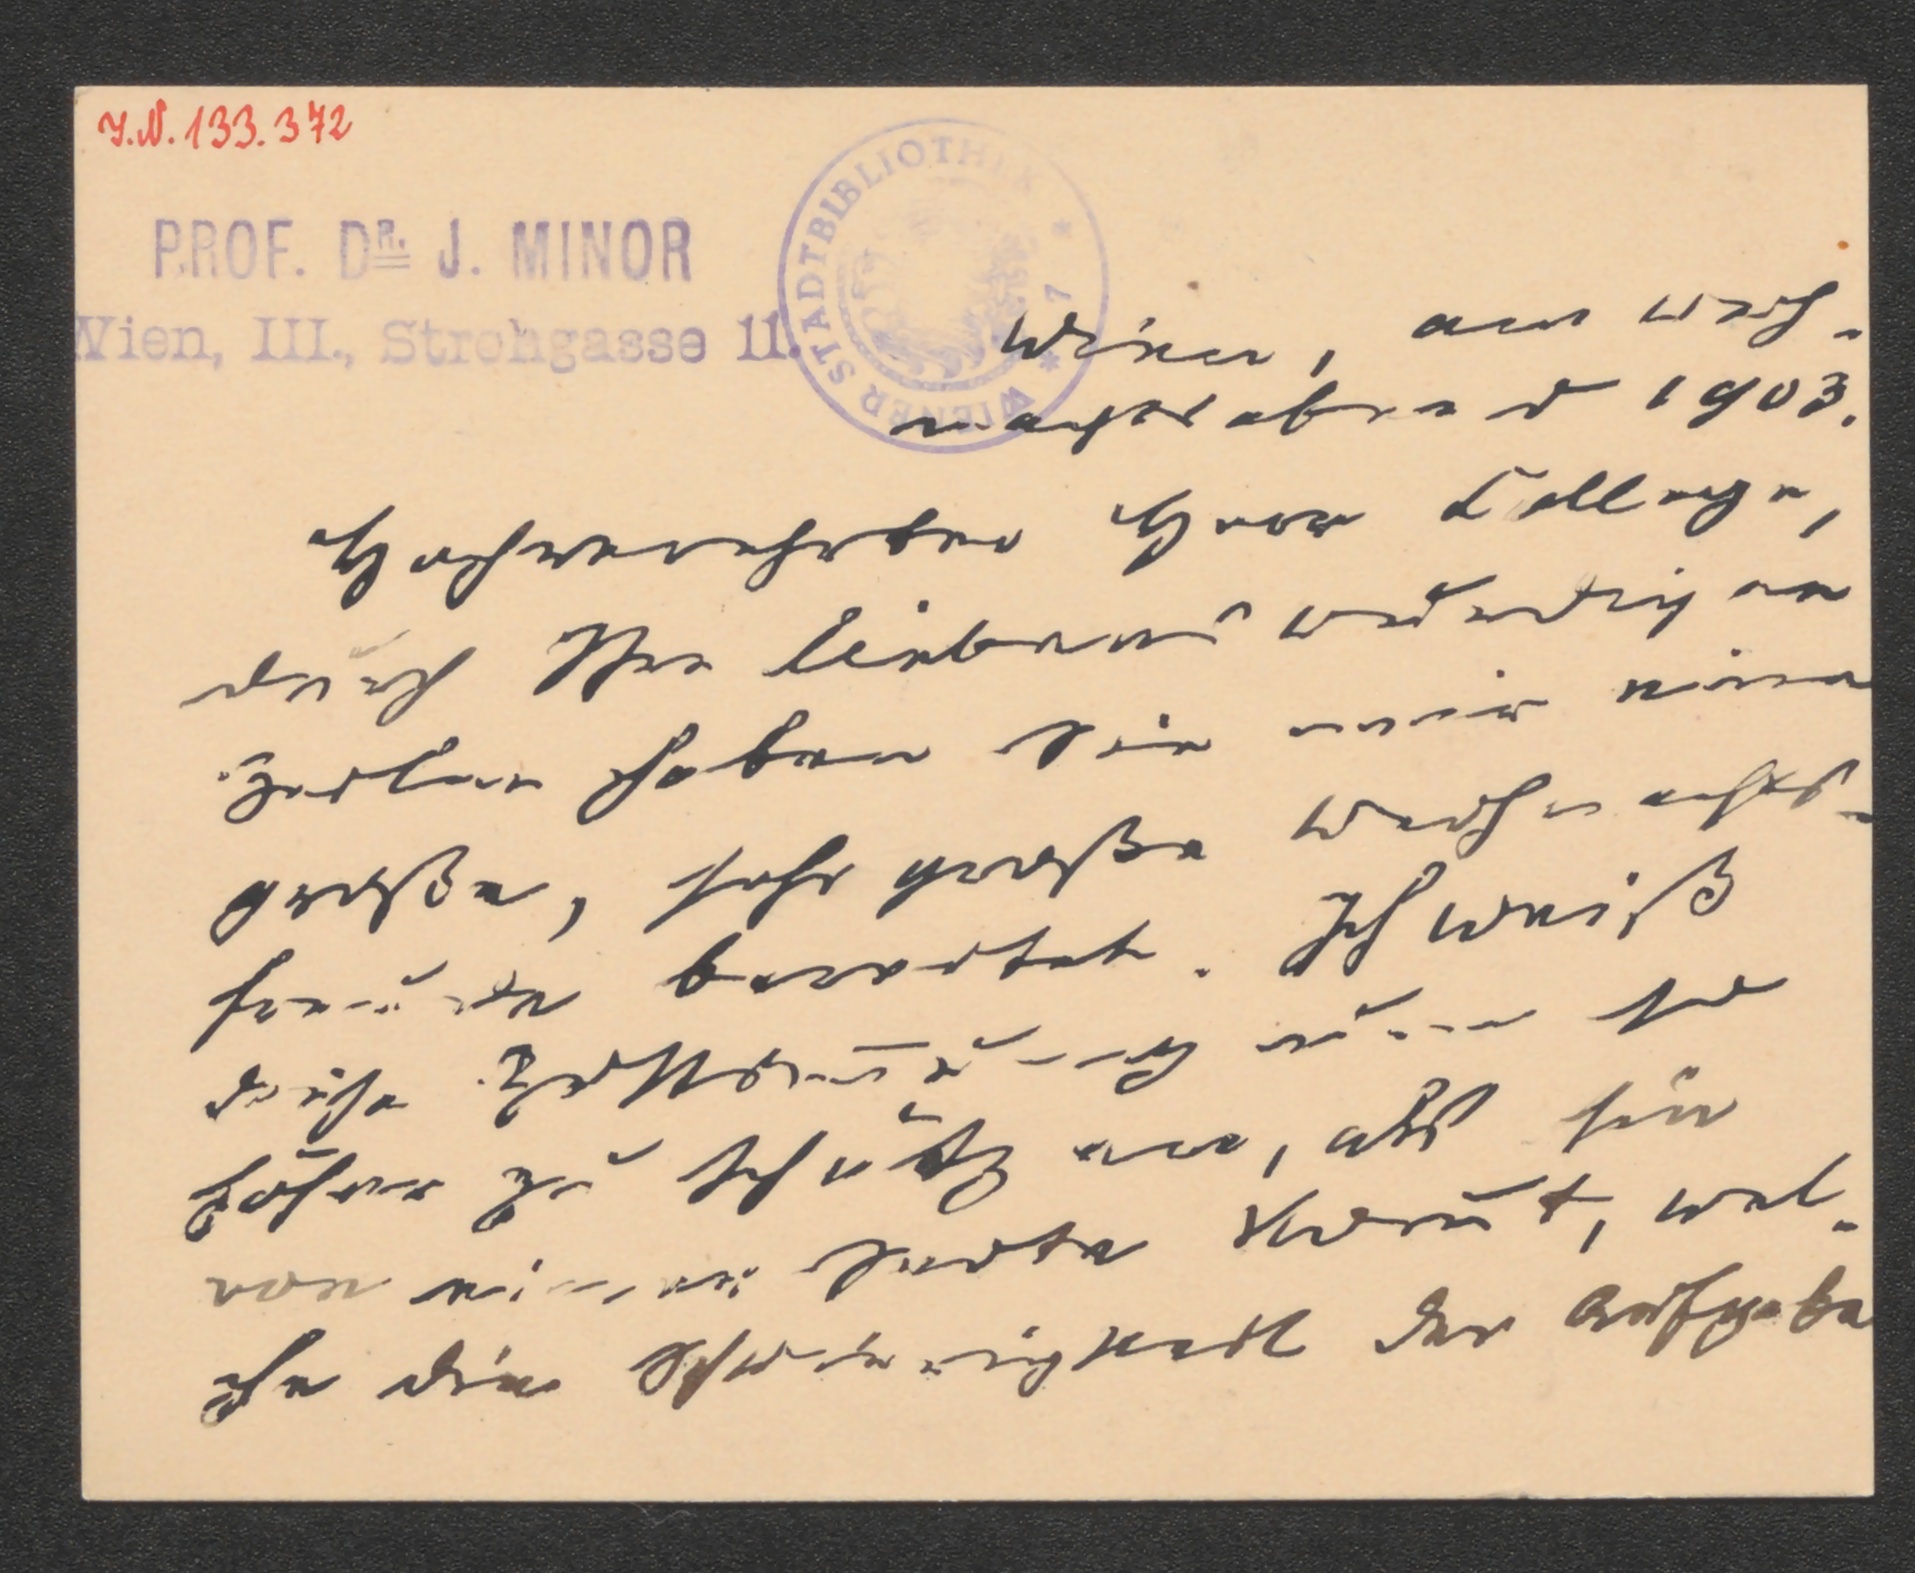 I.N. 133.372
PROF. DR. J. MINOR
Wien, III., Strohgasse 11.
WIENER STADTBIBLIOTHEK * 7 *
Wien, am Weih-
nachtsabend 1903.
Hochverehrter Herr College,
durch Ihre liebenswürdigen
Zeilen haben Sie mir eine
große, sehr große Weihnachts-
freude bereitet. Ich weiß
diese Zustimmung um so
höher zu schätzen, als sie
von einer Seite kommt, wel-
che die Schwierigkeit der Aufgabe